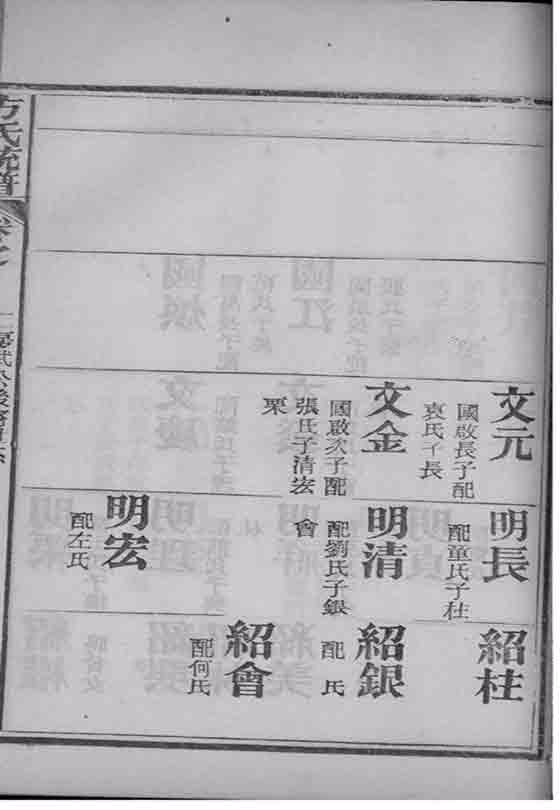 文元
國啟長子配
袁氏子長
文金
國啟次子配
張氏子清宏
栗
明長
配童氏子柱
明清
配劉氏子銀
會
明宏
配左氏
紹柱
紹銀
配 氏
紹會
配何氏
方氏統譜